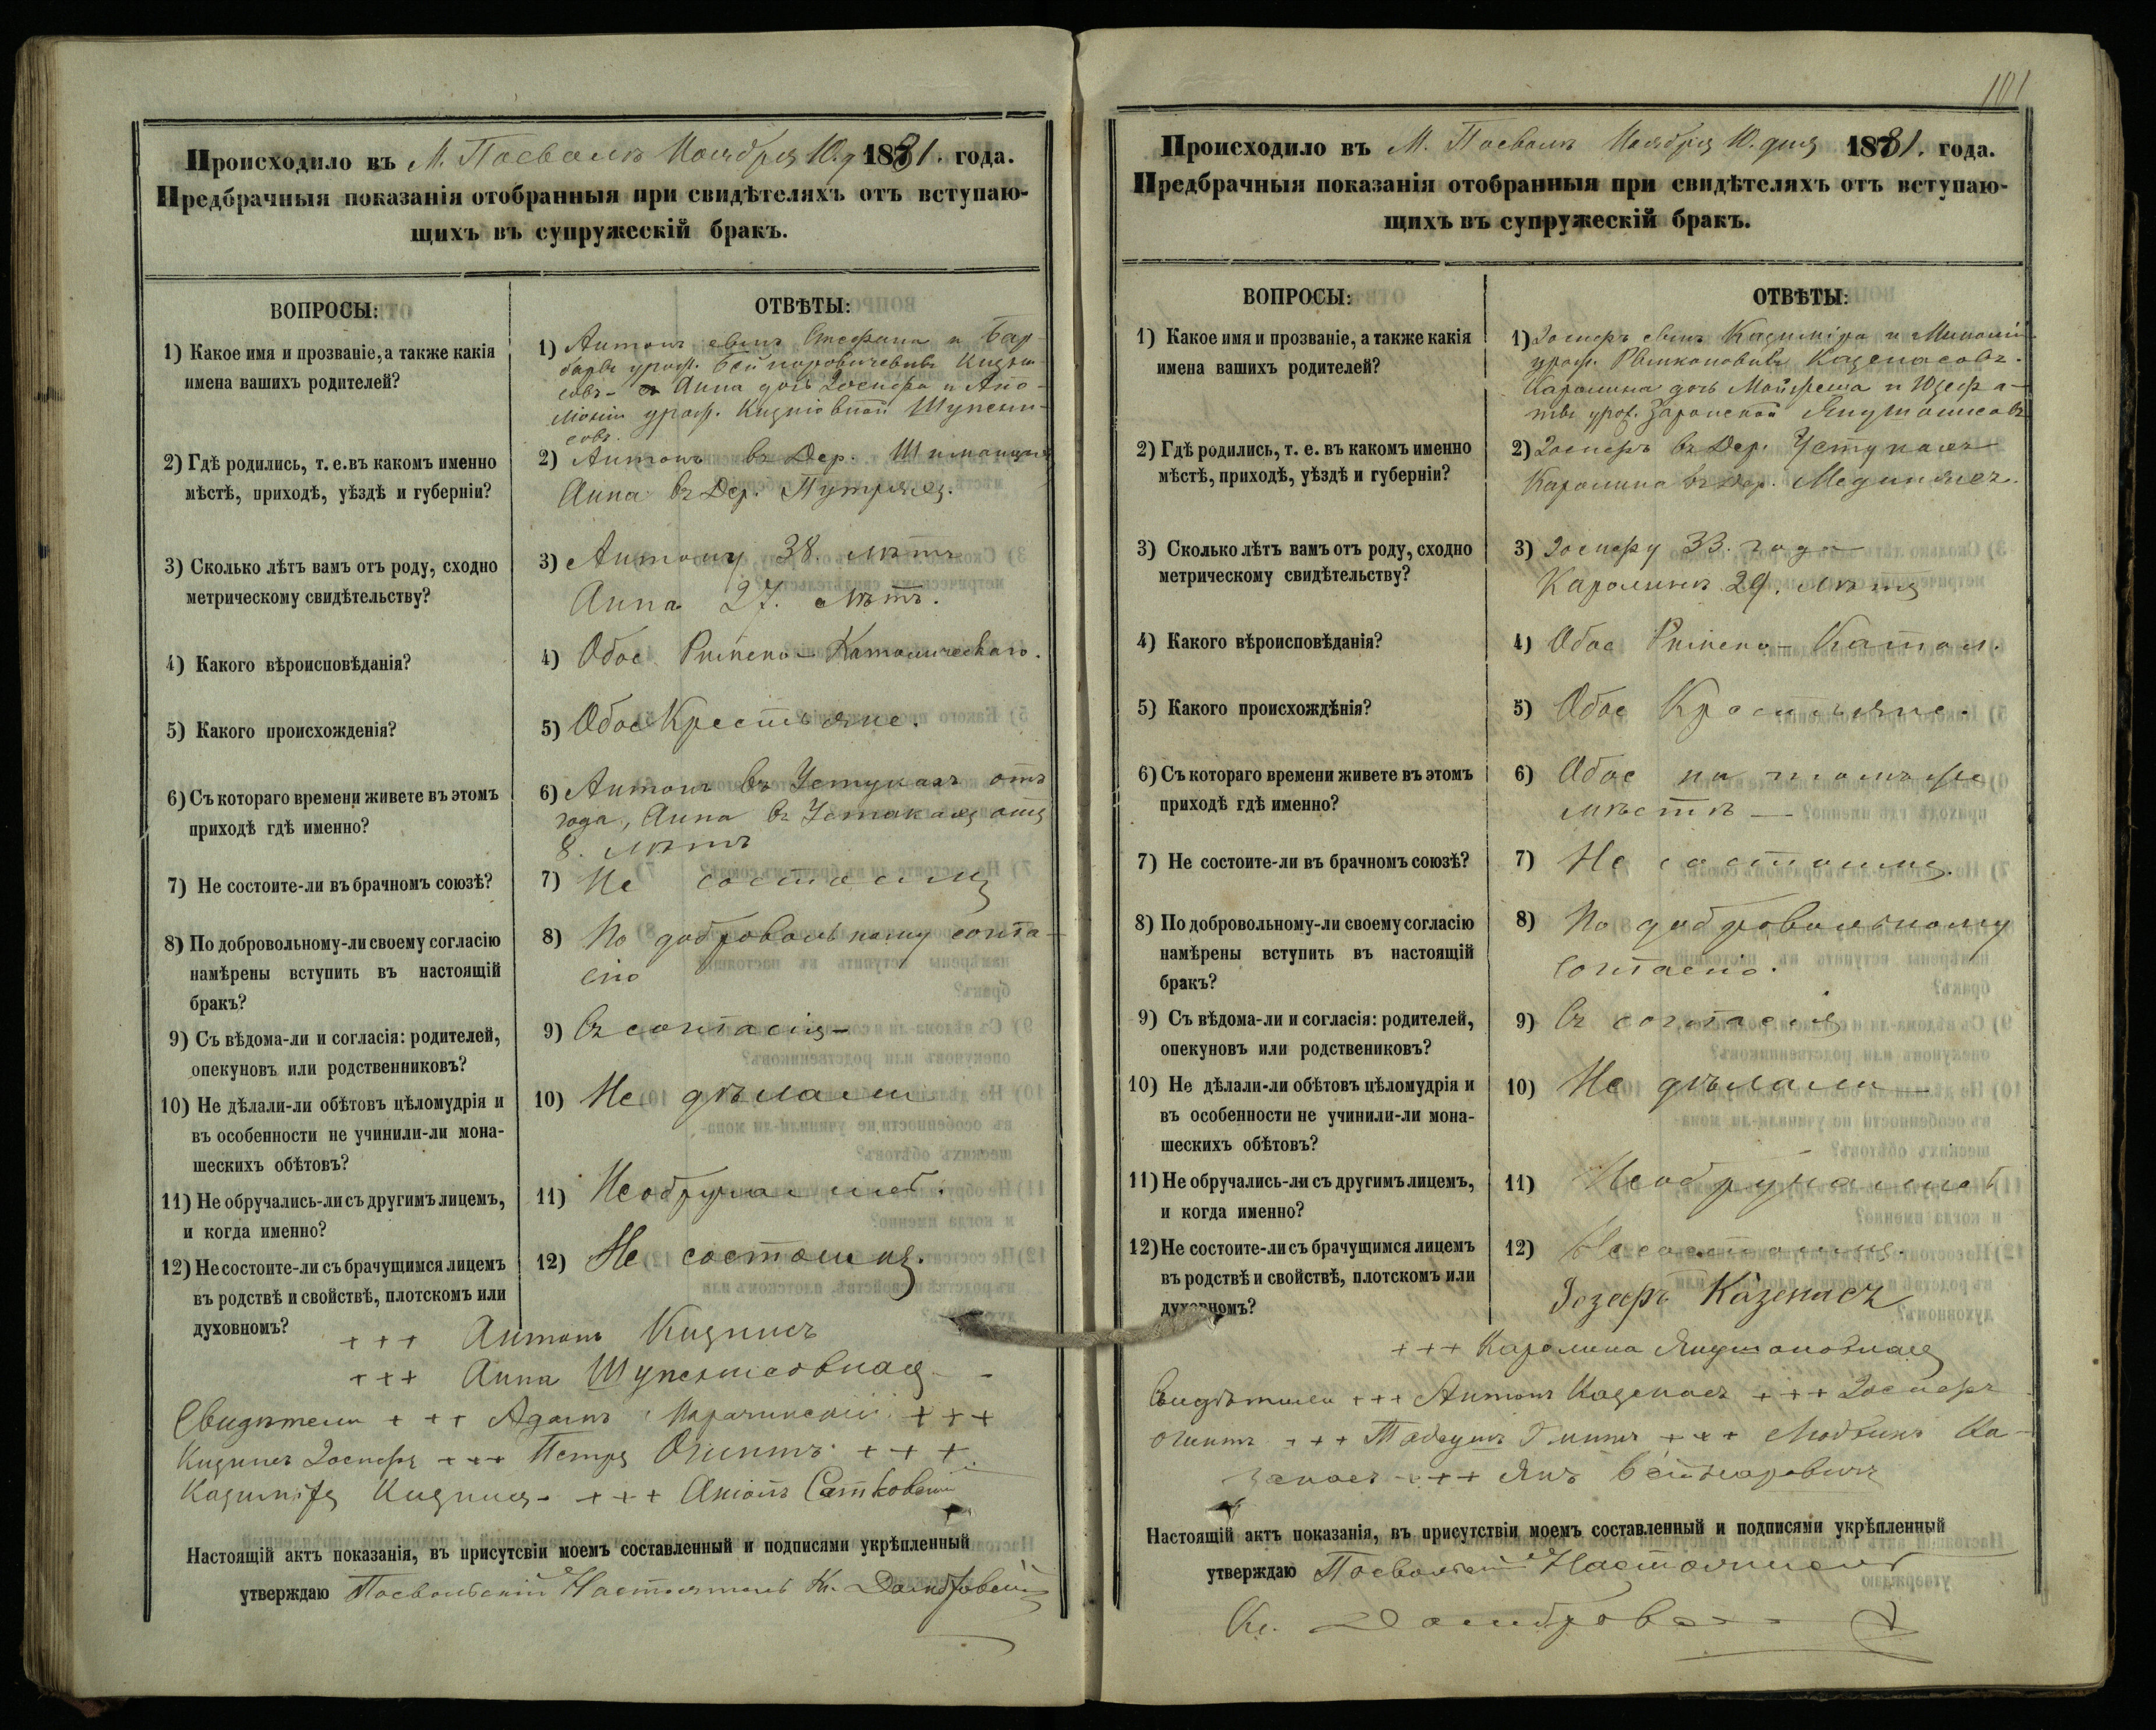 Происходило въ М. Посволь Ноября 10. д 1881. года.
Предбрачныя показанія отобранныя при свидѣтеляхъ отъ вступаю-
щихъ въ супружескій бракъ.
ВОПРОСЫ:
ОТВѢТЫ:
1) Какое имя и прозваніе, а также какія
имена вашихъ родителей?
1) Антонъ сынъ Стефана и Бар-
бары урож.
Анна дочь Іосифа и Апо-
лоніи урож. Шупсни-
совъ.
2) Гдѣ родились, т. е. въ какомъ именно
мѣстѣ, приходѣ, уѣздѣ и губерніи?
2) Антонъ въ Дер.
Анна въ Дер.
3) Сколько лѣтъ вамъ отъ роду, сходно
метрическому свидѣтельству?
3) Антону 38. лѣтъ
Анна 27. лѣтъ.
4) Какого вѣроисповѣданія?
4) Обое Римско-Католическаго.
5) Какого происхожденія?
5) Обое Крестьяне.
6) Съ котораго времени живете въ этомъ
приходѣ гдѣ именно?
6) Антонъ въ Устукахъ отъ
года, Анна въ отъ
8. лѣтъ
7) Не состоите-ли въ брачномъ союзѣ?
7) Не состоимъ
8) По добровольному-ли своему согласію
намѣрены вступить въ настоящій
бракъ?
8) По добровольному согла-
сію
9) Съ вѣдома-ли и согласія: родителей,
опекуновъ или родственниковъ?
9) Съ согласія
10) Не дѣлали-ли обѣтовъ цѣломудрія и
въ особенности не учинили-ли мона-
шескихъ обѣтовъ?
10) Не дѣлали
11) Не обручались-ли съ другимъ лицемъ,
и когда именно?
11) Необручались.
12) Не состоите-ли съ брачущимся лицемъ
въ родствѣ и свойствѣ, плотскомъ или
духовномъ?
12) Не состоимъ.
+++ Антонъ Кидписъ
+++ Анна
Свидѣтели +++ Адамъ +++
Іосифъ +++ Петръ +++
Казиміръ +++
Настоящій актъ показанія, въ присутсвіи моемъ составленный и подписями укрѣпленный
утверждаю Посвольскій Настоятель Кс. Домбровскій
101
Происходило въ М. Посволь Ноября 10. дня 1881. года.
Предбрачныя показанія отобранныя при свидѣтеляхъ отъ вступаю-
щихъ въ супружескій бракъ.
ВОПРОСЫ:
ОТВѢТЫ:
1) Какое имя и прозваніе, а также какія
имена вашихъ родителей?
1) Іосифъ сынъ Казиміра и
урож. Казенасовъ.
Каролина дочь и Юзефа-
ты урож.
2) Гдѣ родились, т. е. въ какомъ именно
мѣстѣ, приходѣ, уѣздѣ и губерніи?
2) Іосифъ въ Дер. Устукахъ
Каролина въ Дер.
3) Сколько лѣтъ вамъ отъ роду, сходно
метрическому свидѣтельству?
3) Іосифу 33. года
Каролинѣ 29. лѣтъ
4) Какого вѣроисповѣданія?
4) Обое Римско-Катол.
5) Какого происхождѣнія?
5) Обое Крестьяне.
6) Съ котораго времени живете въ этомъ
приходѣ гдѣ именно?
6) Обое на томъ же
мѣстѣ —
7) Не состоите-ли въ брачномъ союзѣ?
7) Не состоимъ.
8) По добровольному-ли своему согласію
намѣрены вступить въ настоящій
бракъ?
8) По добровольному
согласію.
9) Съ вѣдома-ли и согласія: родителей,
опекуновъ или родствениковъ?
9) Съ согласія
10) Не дѣлали-ли обѣтовъ цѣломудрія и
въ особенности не учинили-ли мона-
шескихъ обѣтовъ?
10) Не дѣлали
11) Не обручались-ли съ другимъ лицемъ,
и когда именно?
11) Необручались
12) Не состоите-ли съ брачущимся лицемъ
въ родствѣ и свойствѣ, плотскомъ или
духовномъ?
12) Не состоимъ.
Іозафъ Казенасъ
+++ Каролина
Свидѣтели +++ Антонъ Казенасъ +++ Іосифъ
+++ +++ Ка-
зенасъ +++ Янъ
Настоящій актъ показанія, въ присутствіи моемъ составленный и подписями укрѣпленный
утверждаю Посвольскій Настоятель
Кс.